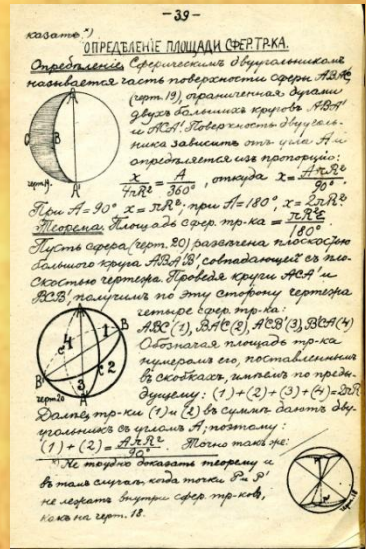 -39-
казать.*)
ОПРЕДѢЛЕНІЕ ПЛОЩАДИ СФЕР. ТР-КА.
Опредѣленіе. Сферическимъ двуугольникомъ
называется часть поверхности сферы ABA'C
(черт. 19), ограниченная дугами
двухъ большихъ круговъ ABA'
и ACA'. Поверхность двууголь-
ника зависитъ отъ угла A и
опредѣляется изъ пропорціи:
x/4πR² = A/360°, откуда x = AπR²/90°.
При A=90° x=πR²; при A=180°, x=2πR²
Теорема. Площадь сфер. тр-ка = πR²ε/180°.
Пусть сфера (черт. 20) разсѣчена плоскостью
большого круга ABA'B', совпадающей съ пло-
скостью чертежа. Проведя круги ACA' и
BCB', получимъ по эту сторону чертежа
четыре сфер. тр-ка:
ABC (1), BA'C (2), A'CB' (3), B'CA (4)
Обозначая площадь тр-ка
нумеромъ его, поставленнымъ
въ скобкахъ, имѣемъ по преды-
дущему: (1)+(2)+(3)+(4)=2πR²
Далѣе, тр-ки (1) и (2) въ суммѣ даютъ дву-
угольникъ съ угломъ A; поэтому:
(1)+(2) = AπR²/90°. Точно такъ же:
*) Не трудно доказать теорему и
въ томъ случаѣ, когда точки P и P'
не лежатъ внутри сфер. тр-ковъ,
какъ на черт. 18.
A
C
B
A'
черт. 19.
A
4
1
B
C
2
B'
3
A'
черт. 20
черт. 18